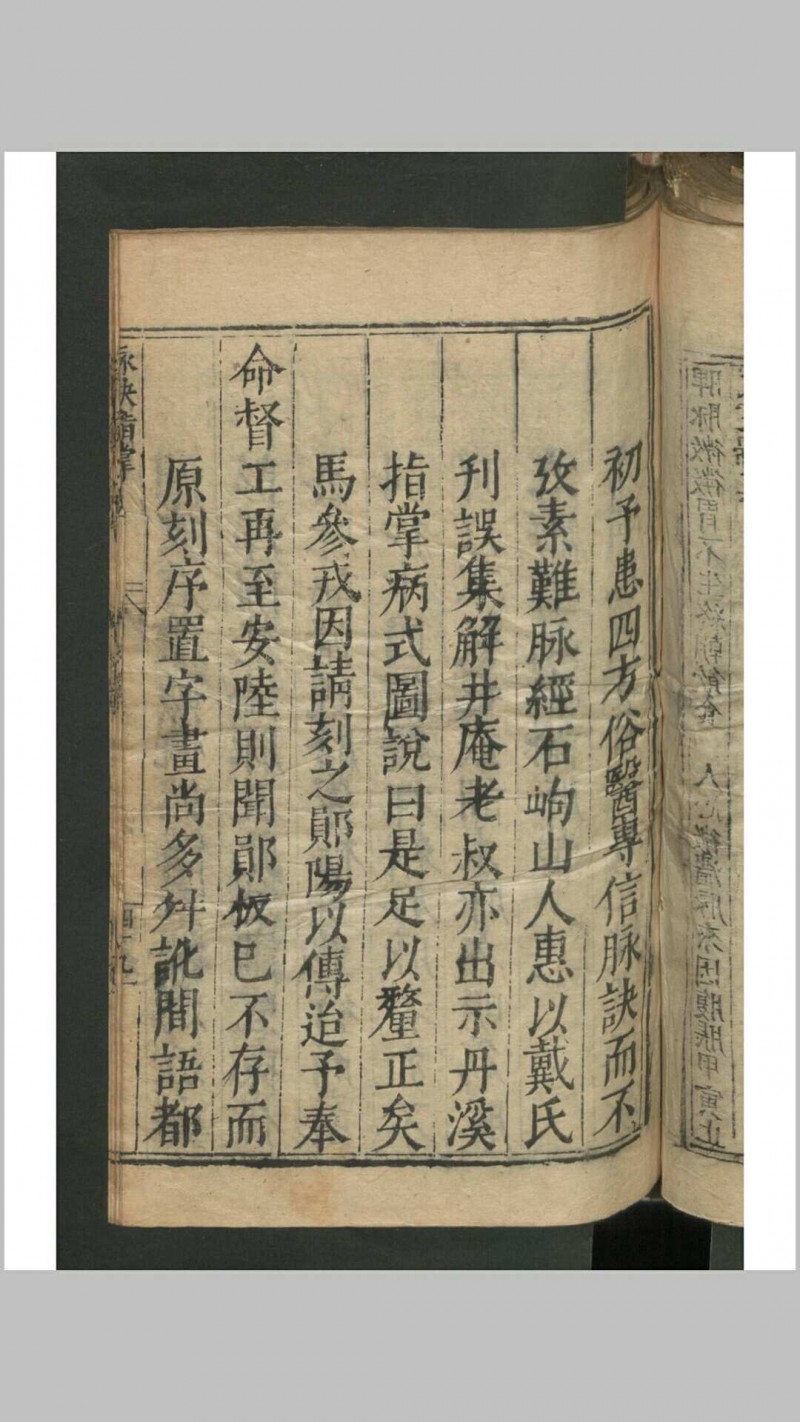 初予患四方俗醫專信脉訣而不
攷素難脉經石峋山人惠以戴氏
刋誤集解井庵老叔亦出示丹溪
指掌病式圖說曰是足以釐正矣
馬參戎因請刻之鄖陽以傳迨予奉
命督工再至安陸則聞鄖板已不存而
原刻序置字畫尚多舛訛間語都
脉訣指掌